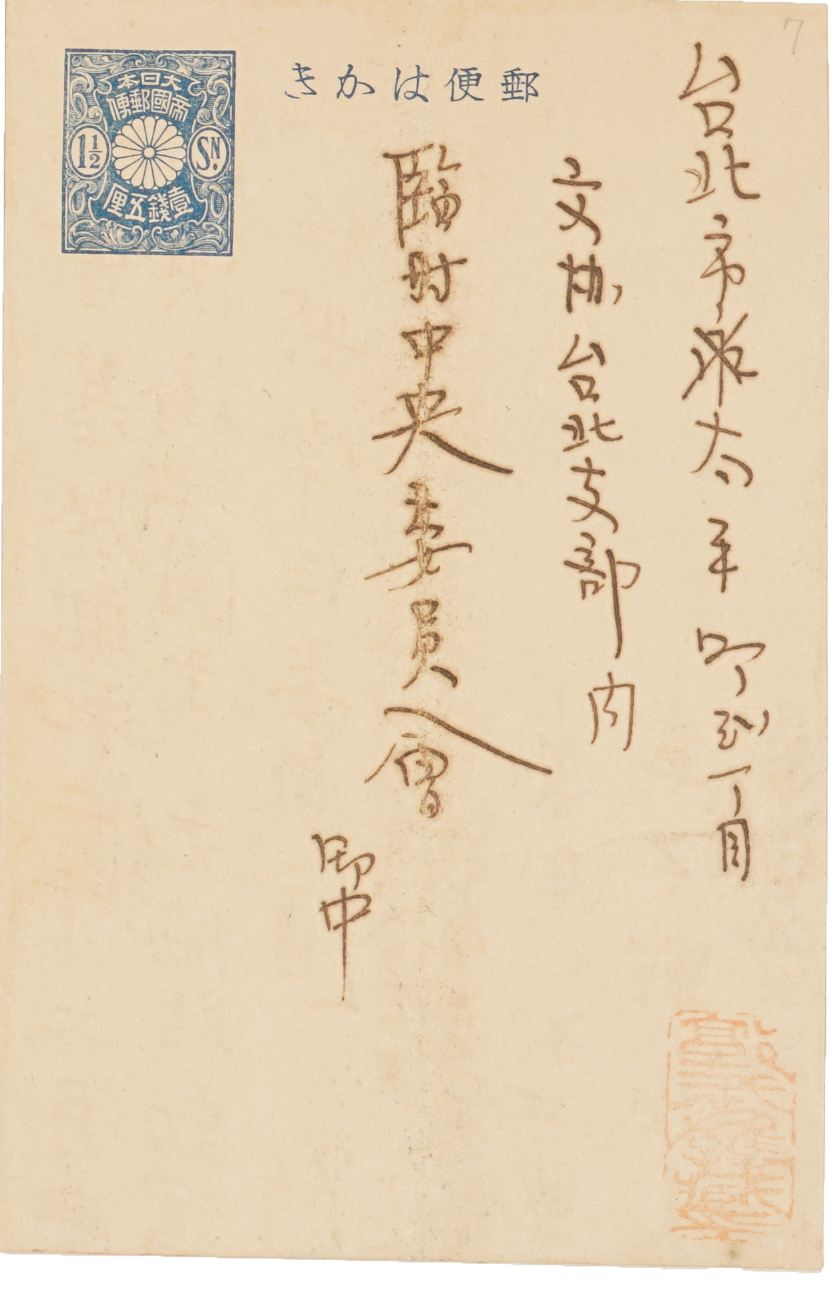 7
郵便はかき
大日本
帝國郵便
1½ SN.
壹錢五厘
台北市太平町丁目
文協台北支部内
臨時中央委員會
御中